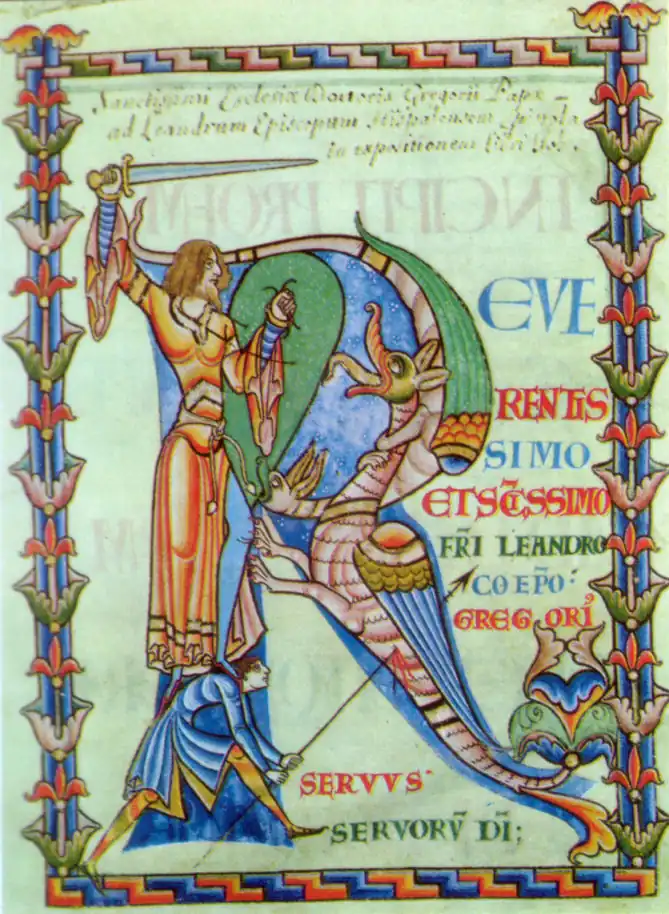 Sanctissimi Ecclesiæ Doctoris Gregorii Papæ
ad Leandrum Episcopum Hispalensem
in expositionem libri Iob.
INCIPIT PROEM
REVE
RENTIS
SIMO
ETSC̅ISSIMO
FR̅I LEANDRO
COEP̅O:
GREGORIꝰ
SERVVS·
SERVORV̅ DI̅;